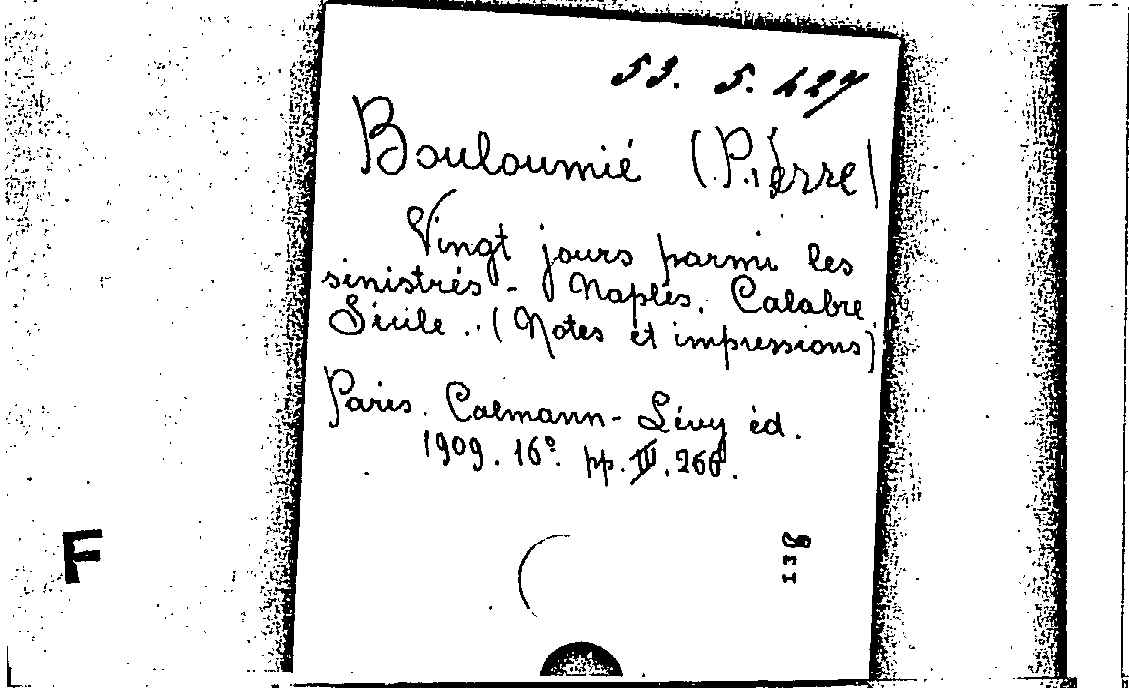 53. 5. 427
Bouloumié (Pierre)
Vingt jours parmi les
sinistrés - Naples. Calabre
Sicile.. (Notes et impressions)
Paris. Calmann-Lévy éd.
1909. 16º. pp. III, 266.
F